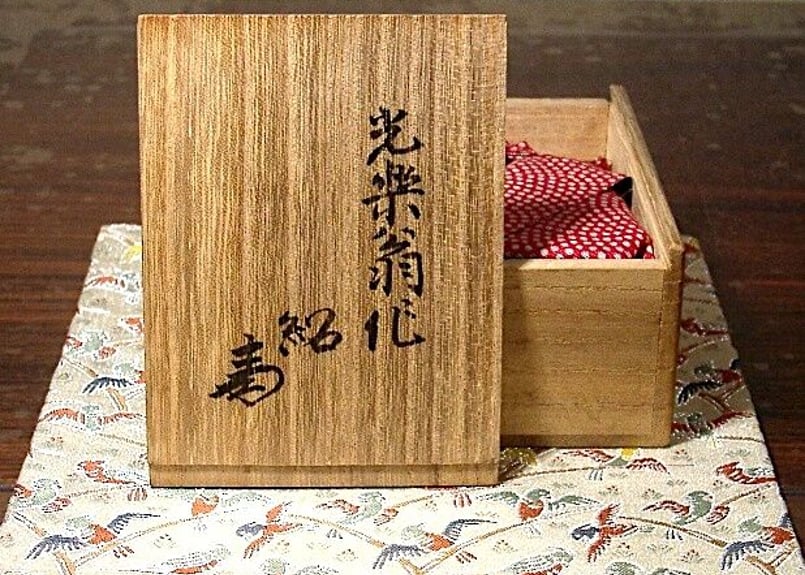 光楽翁作
紹
寿